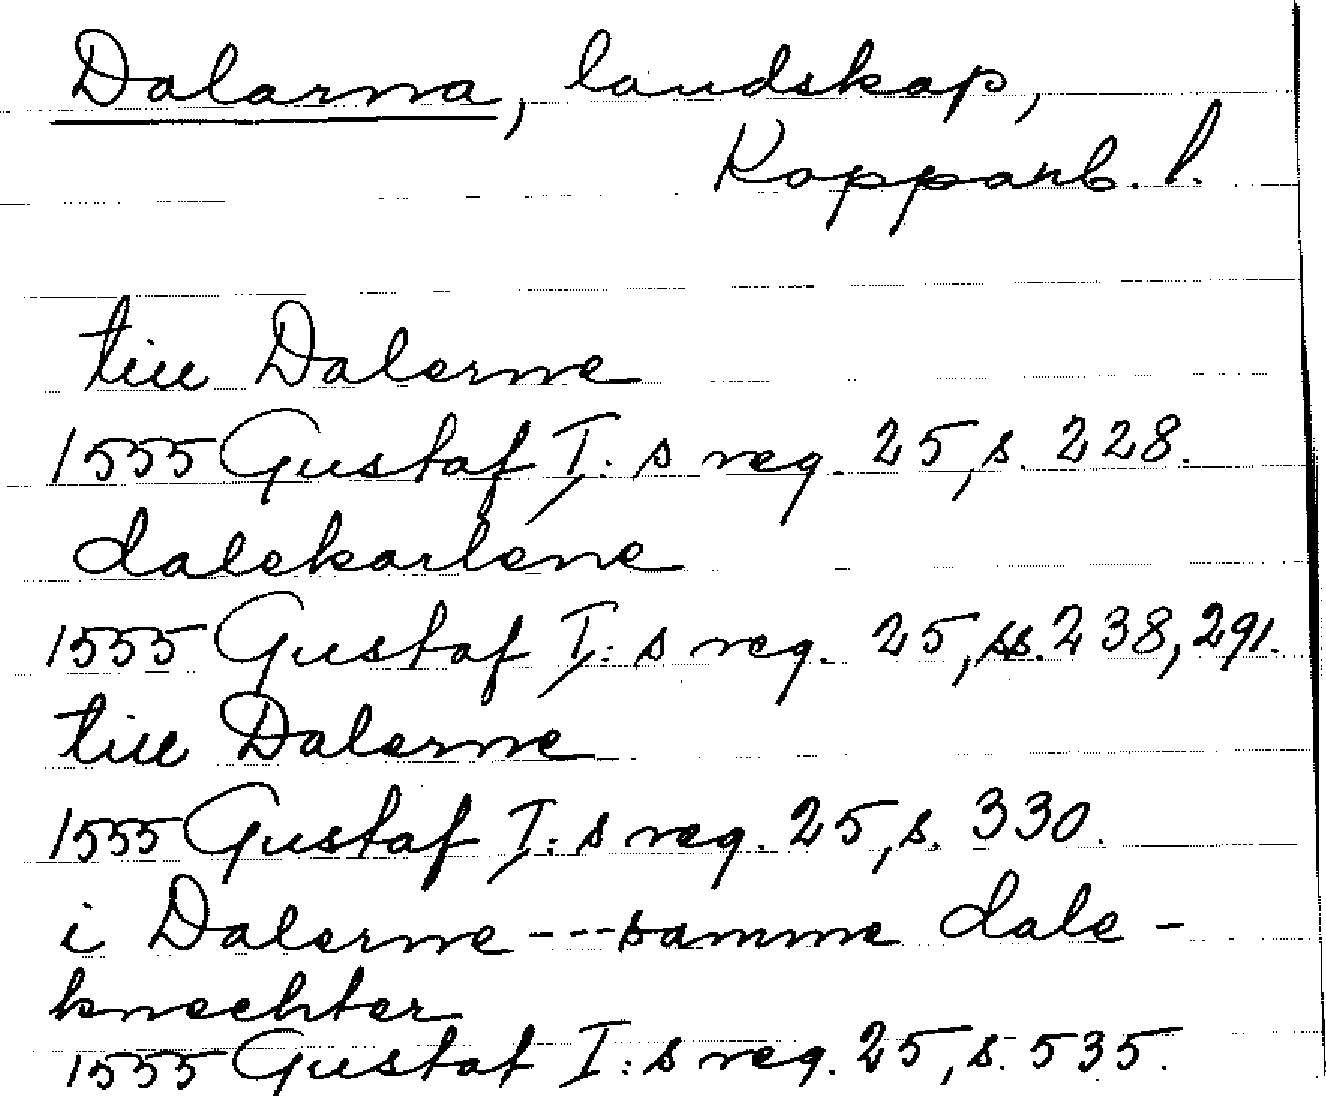 Dalarna, landskap,
Kopparb. l.
till Dalerne
1555 Gustaf I:s reg. 25, s. 228.
dalekarlene
1555 Gustaf I:s reg. 25, ss. 238, 291.
till Dalerne
1555 Gustaf I:s reg. 25, s. 330.
i Dalerne --- samme dale-
knechter
1555 Gustaf I:s reg. 25, s. 535.